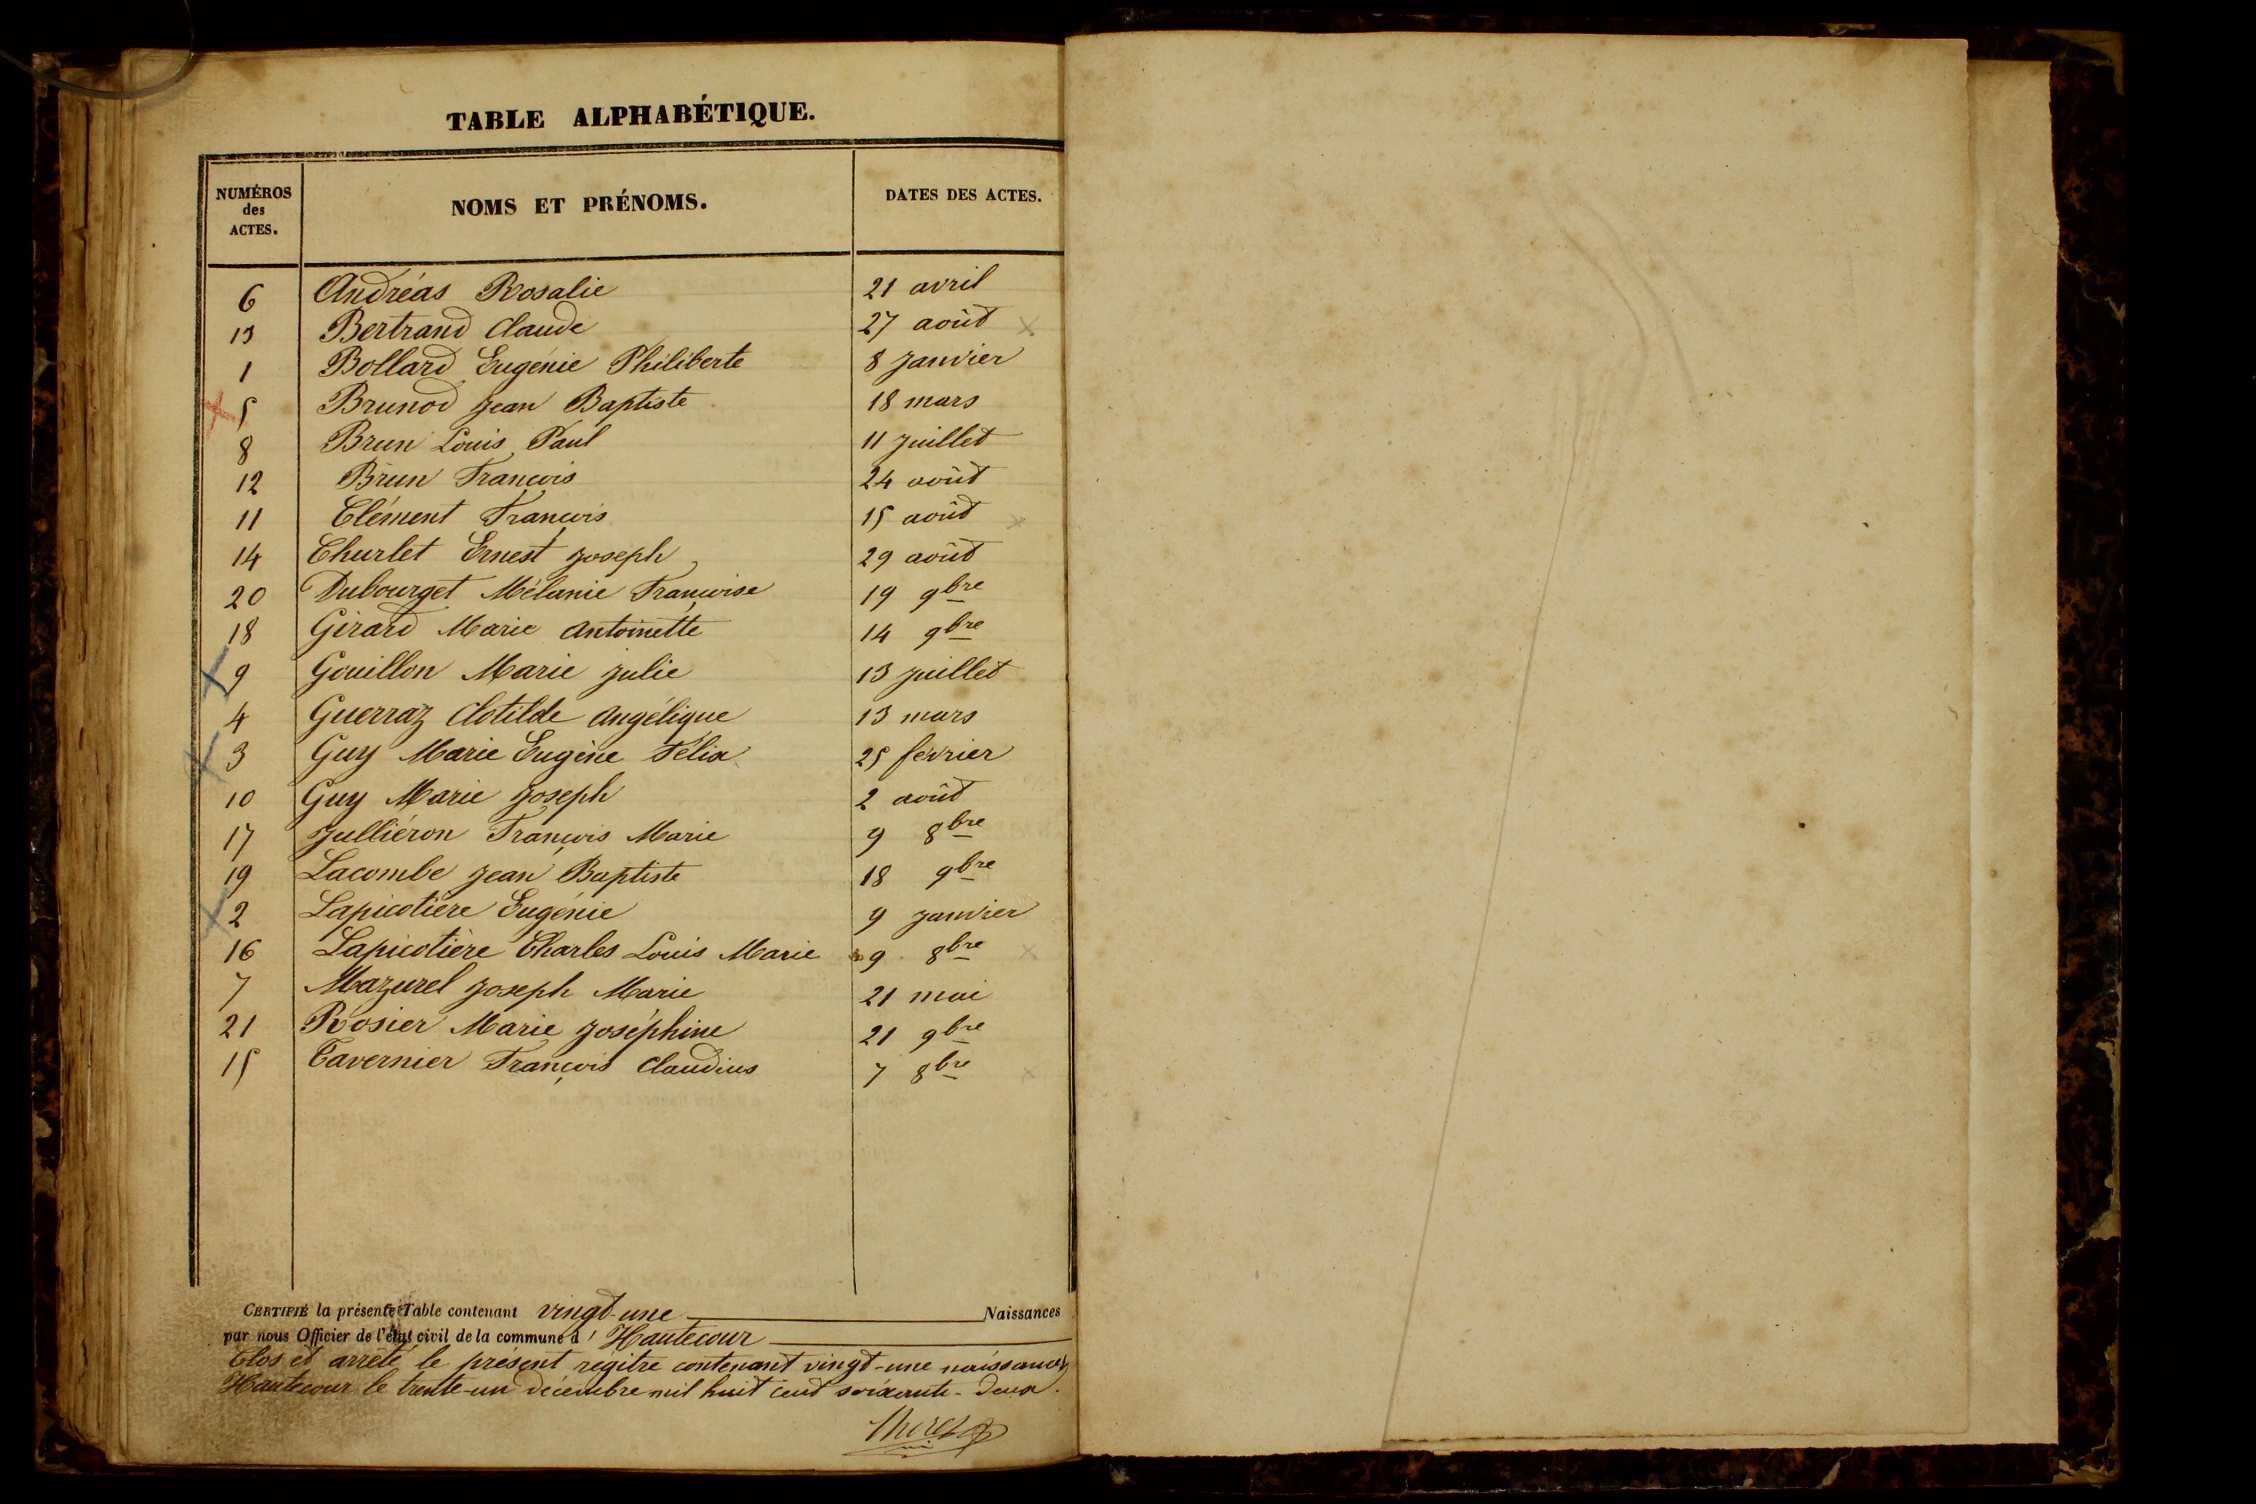 TABLE ALPHABÉTIQUE.
NUMÉROS des ACTES. NOMS ET PRÉNOMS. DATES DES ACTES.
6 Andréas Rosalie 21 avril
13 Bertrand Claude 27 août
1 Bollard Eugénie Philiberte 8 janvier
5 Brunod Jean Baptiste 18 mars
8 Brun Louis Paul 11 juillet
12 Brun François 24 août
11 Clément François 15 août
14 Churlet Ernest Joseph 29 août
20 Dubourget Mélanie Françoise 19 9bre
18 Girard Marie Antoinette 14 9bre
9 Gouillon Marie Julie 13 juillet
4 Guerraz Clotilde Angélique 13 mars
3 Guy Marie Eugène Félix 25 février
10 Guy Marie Joseph 2 août
17 Julliéron François Marie 9 8bre
19 Lacombe Jean Baptiste 18 9bre
2 Lapicotière Eugénie 9 janvier
16 Lapicotière Charles Louis Marie 9 8bre
7 Mazurel Joseph Marie 21 mai
21 Rosier Marie Joséphine 21 9bre
15 Tavernier François Claudius 7 8bre
CERTIFIÉ la présente Table contenant vingt-une Naissances
par nous Officier de l'état civil de la commune d' Hautecour
Clos et arrêté le présent regitre contenant vingt-une naissances
Hautecour le trente-un décembre mil huit cent soixante-deux.